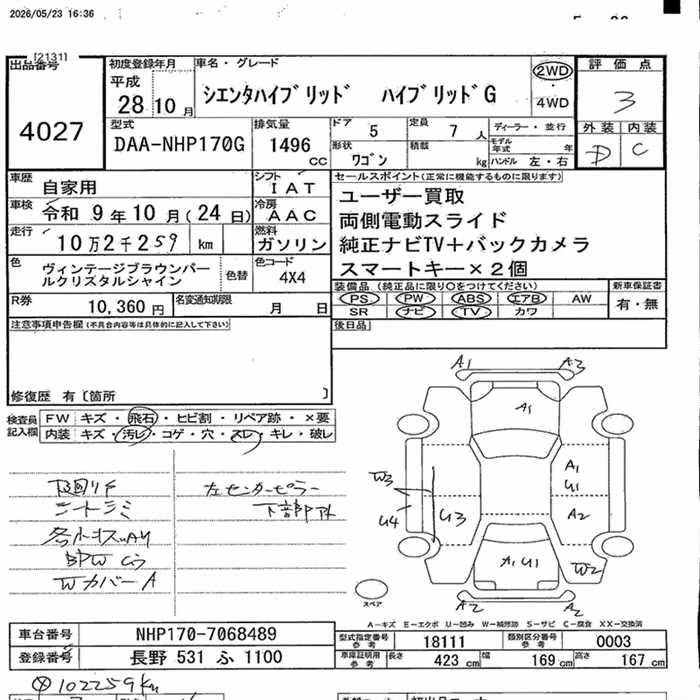 2026/05/23 16:36
[2131]
出品番号
4027
初度登録年月
平成
28 10月
車名・グレード
シエンタハイブリッド ハイブリッドG
2WD
・
4WD
評価点
3
外装 内装
D C
型式
DAA-NHP170G
排気量
1496
cc
ドア 5
定員 7 人
形状 ワゴン
積載 kg
ディーラー・並行
モデル年式 年
ハンドル 左・右
車歴 自家用
シフト IAT
車検 令和 9年10月(24日)
冷房 AAC
走行 10万2千259 km
燃料 ガソリン
色 ヴィンテージブラウンパールクリスタルシャイン
色替
色コード 4X4
R券 10,360円
名変通知期限 月 日
セールスポイント(正常に機能するものに限ります)
ユーザー買取
両側電動スライド
純正ナビTV+バックカメラ
スマートキー×2個
装備品 (純正品に限り○をつけてください)
PS PW ABS エアB AW
SR ナビ TV カワ
新車保証書
有・無
後日品
注意事項申告欄(不具合内容等は具体的に記入して下さい)
修復歴 有〔箇所 〕
検査員記入欄
FW キズ・飛石・ヒビ割・リペア跡・×要
内装 キズ・汚レ・コゲ・穴・スレ・キレ・破レ
下廻りF
シートシミ
左センターピラー
下部凹
Wカバー A
A1 A3
A1
A1
U1
A2
W3
U4
U3
A1 U1
W2
A2 A2
スペア
A―キズ E―エクボ U―凹み W―補修跡 S―サビ C―腐食 XX―交換済
車台番号 NHP170-7068489
登録番号 長野 531 ふ 1100
型式指定番号 参考 18111
類別区分番号 参考 0003
車庫証明用 参考 長さ 423 cm 幅 169 cm 高さ 167 cm
102259km